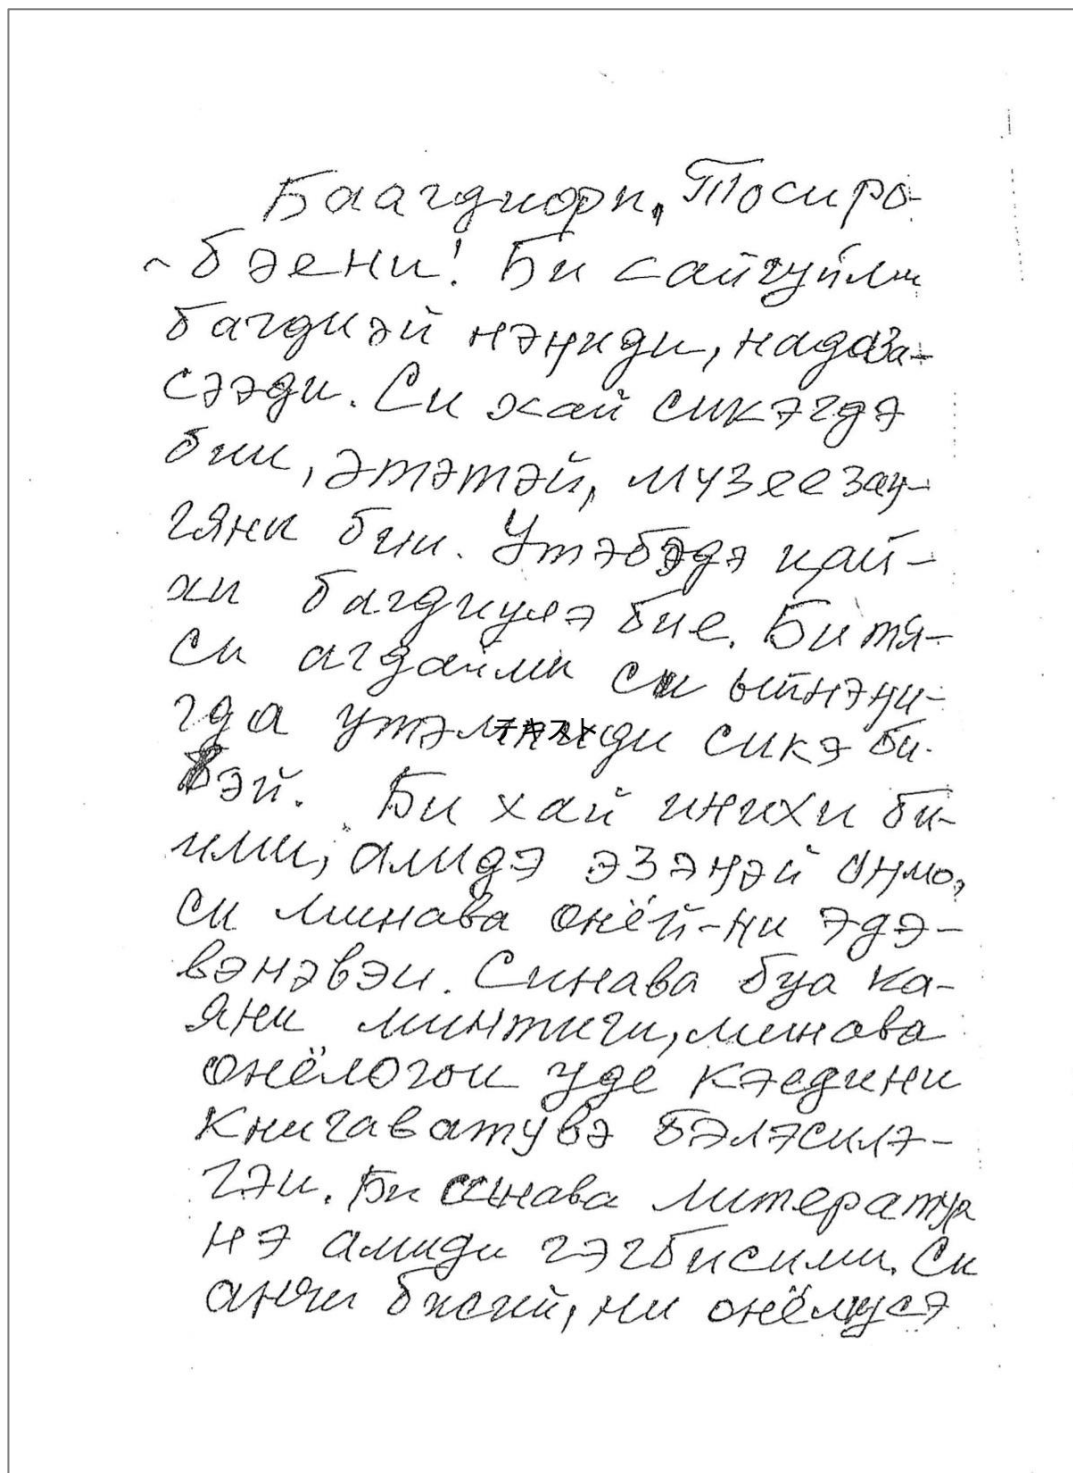 Баагдиори, Тосиро-
бэени! Би сайгуйми
багдиэй нэӊиди, надаза-
сээди. Си хай сикэгдэ
бии, этэтэй, музеезау-
гяни бии. Утэбэдэ цай-
хи багдиулэ бие. Би тя-
си агдайми си ыйнэӊи-
гда утэмэ テキスト ди сикэ би-
вэй. Би хай инихи би-
ими, амидэ эзэӊэй онмо,
си минава онёй-ни эдэ-
вэнэвэи. Синава буа ка-
яни минтиги, минава
онёлогои уде кэедини
книгаватувэ бэлэсилэ-
гэи. Би синава литератур
нэ амиди гэгбисими. Си
анчи бисий, ни онёлцусэ